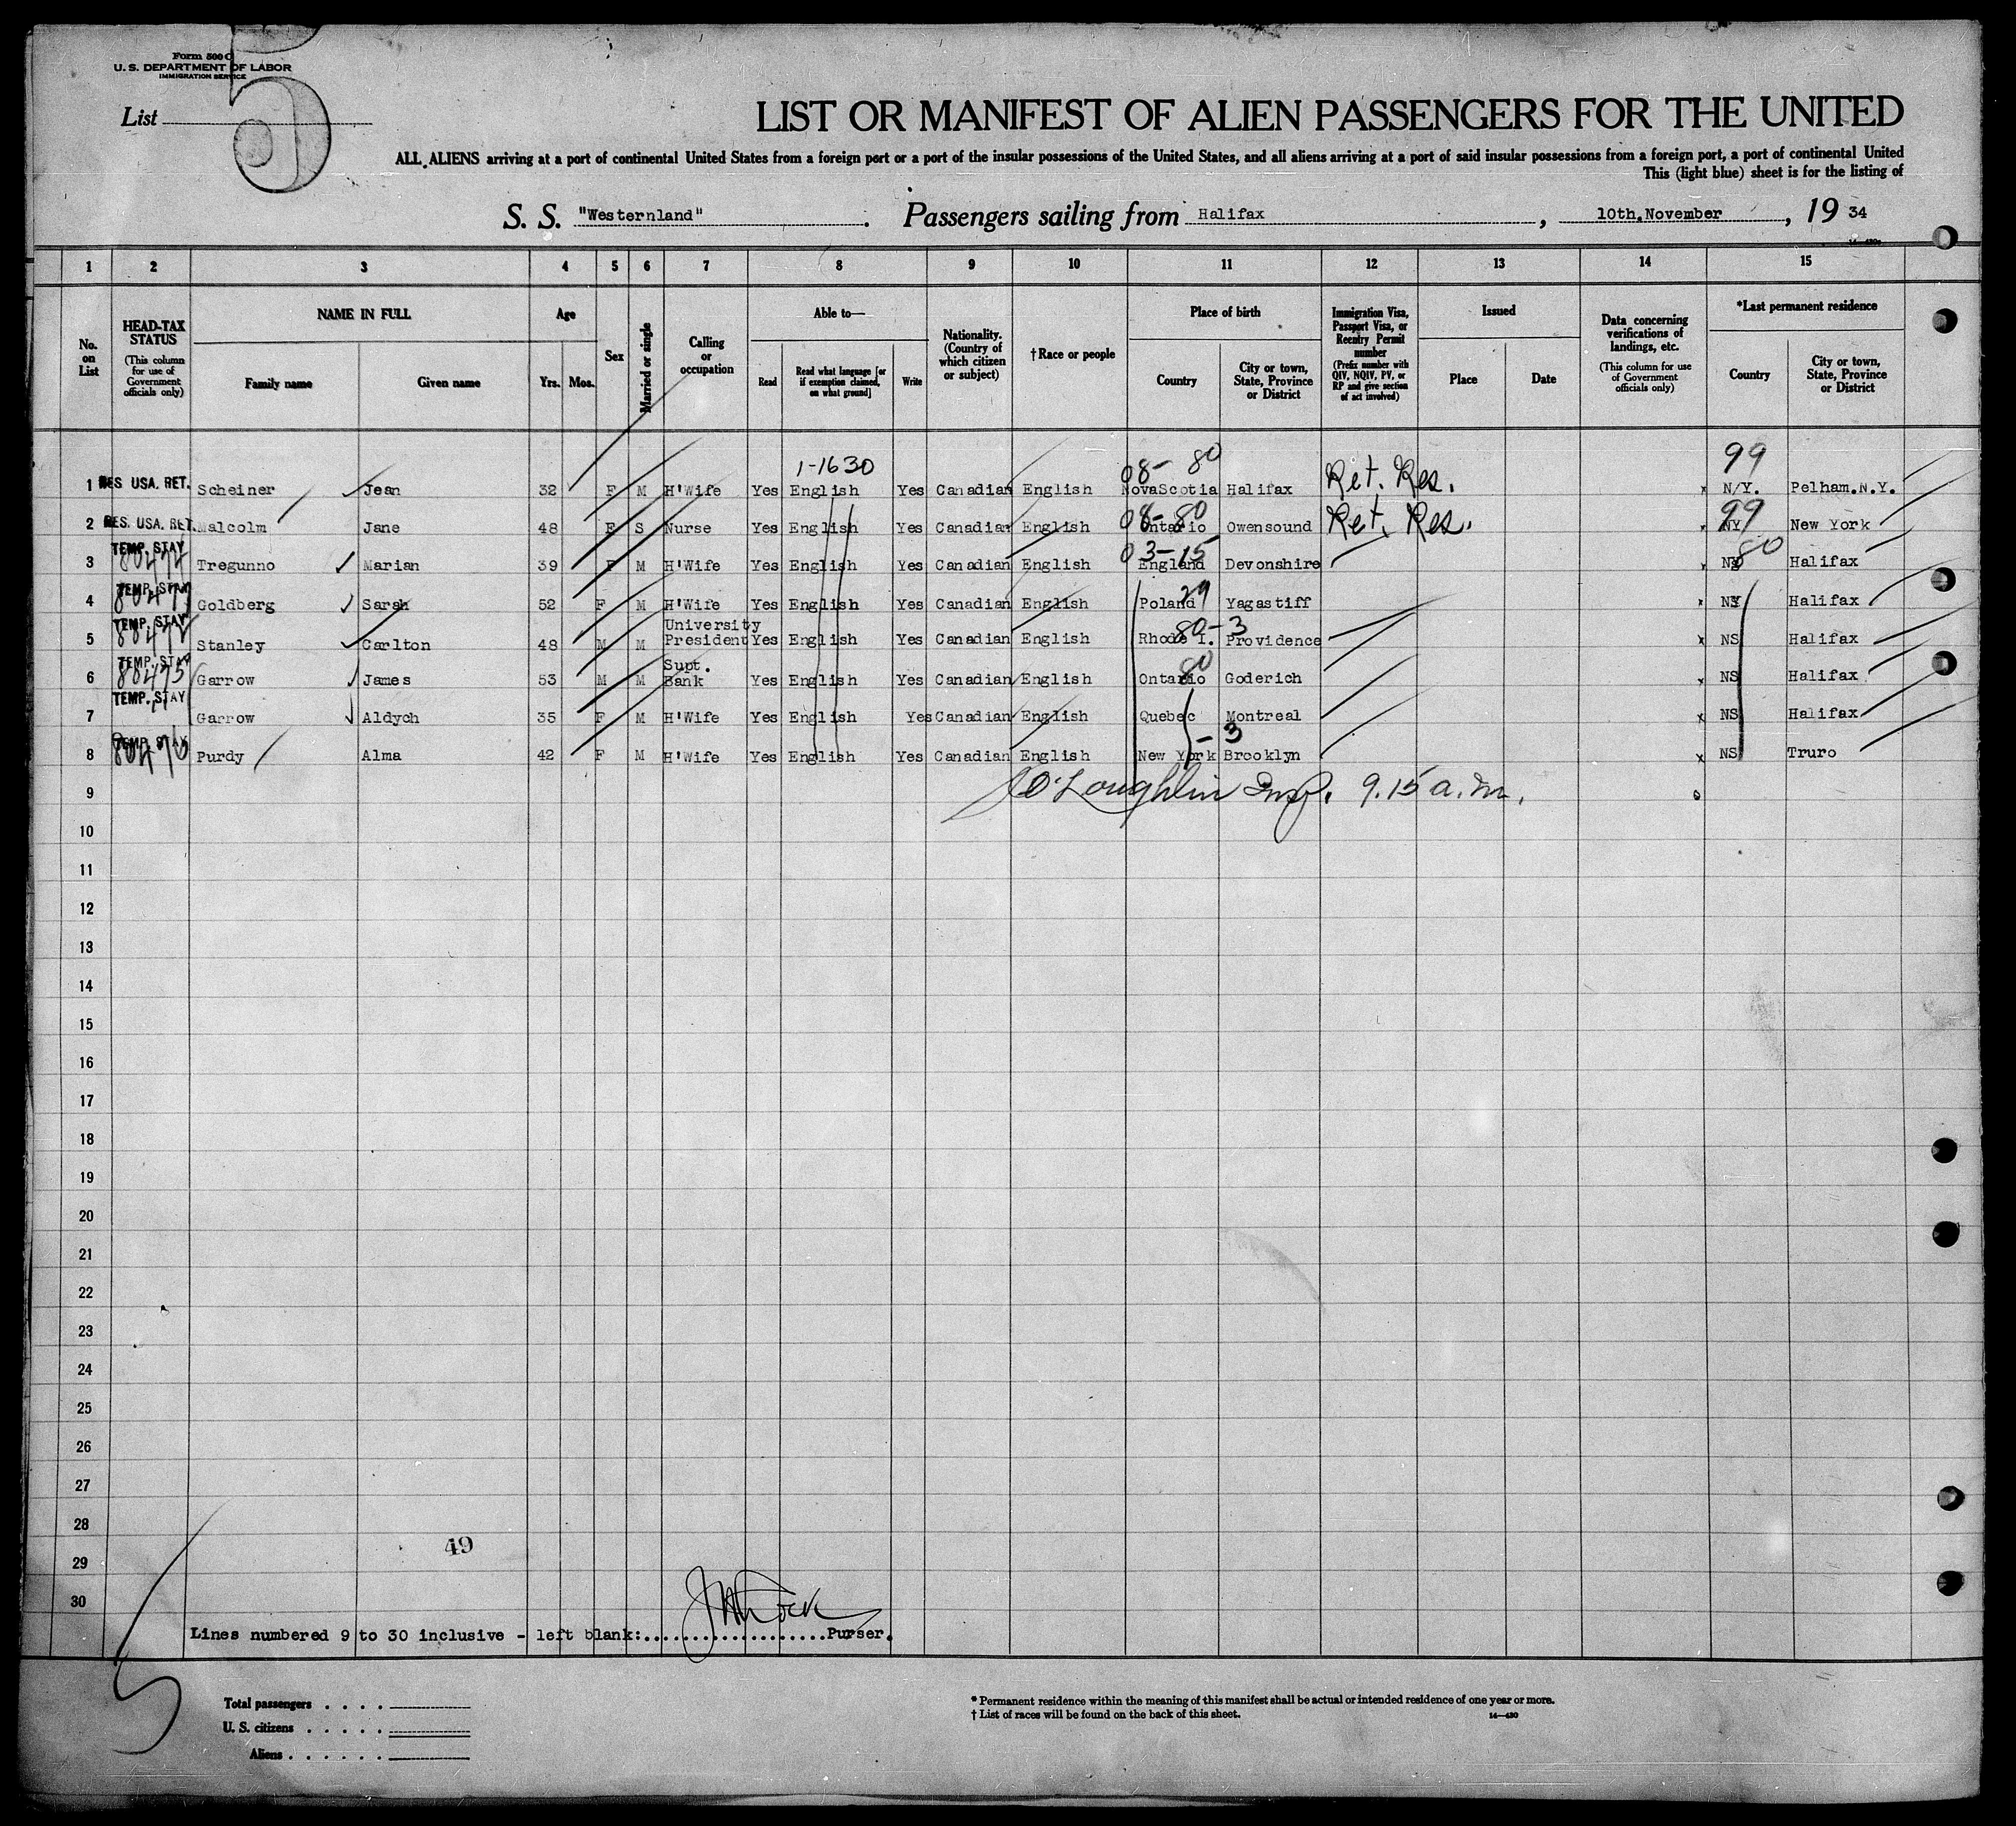 Form 500 C
U. S. DEPARTMENT OF LABOR
IMMIGRATION SERVICE
List
5
LIST OR MANIFEST OF ALIEN PASSENGERS FOR THE UNITED
ALL ALIENS arriving at a port of continental United States from a foreign port or a port of the insular possessions of the United States, and all aliens arriving at a port of said insular possessions from a foreign port, a port of continental United
This (light blue) sheet is for the listing of
S. S. "Westernland". Passengers sailing from Halifax, 10th.November, 19 34
1 2 3 4 5 6 7 8 9 10 11 12 13 14 15
No. on List
HEAD-TAX STATUS (This column for use of Government officials only)
NAME IN FULL Family name Given name
Age Yrs. Mos.
Sex
Married or single
Calling or occupation
Able to— Read Read what language [or if exemption claimed, on what ground] Write
Nationality. (Country of which citizen or subject)
†Race or people
Place of birth Country City or town, State, Province or District
Immigration Visa, Passport Visa, or Reentry Permit number (Prefix number with QIV, NQIV, PV, or RP and give section of act involved)
Issued Place Date
Data concerning verifications of landings, etc. (This column for use of Government officials only)
*Last permanent residence Country City or town, State, Province or District
1-1630 08- 80 99
1 RES USA. RET. Scheiner Jean 32 F M H'Wife Yes English Yes Canadian English NovaScotia Halifax Ret. Res. x N/Y. Pelham.N.Y.
08-80 99
2 RES. USA. RET. Malcolm Jane 48 F S Nurse Yes English Yes Canadian English Ontario Owensound Ret. Res. x NY New York
TEMP. STAY 03-15 80
3 80474 Tregunno Marian 39 F M H'Wife Yes English Yes Canadian English England Devonshire x Halifax
TEMP. STAY 29
4 Goldberg Sarah 52 F M H'Wife Yes English Yes Canadian English Poland Yagastiff x Halifax
TEMP. STAY University 80-3
5 Stanley Carlton 48 M M President Yes English Yes Canadian English Rhode I. Providence x NS Halifax
TEMP. STAY Supt. 80
6 80475 Garrow James 53 M M Bank Yes English Yes Canadian English Ontario Goderich x NS Halifax
TEMP. STAY
7 Garrow Aldych 35 F M H'Wife Yes English Yes Canadian English Quebec Montreal x NS Halifax
TEMP. STAY -3
8 80476 Purdy Alma 42 F M H'Wife Yes English Yes Canadian English New York Brooklyn x NS Truro
9 O'Loughlin Insp. 9.15 a.m.
10
11
12
13
14
15
16
17
18
19
20
21
22
23
24
25
26
27
28
49
29
30
Lines numbered 9 to 30 inclusive - left blank:....................Purser.
Total passengers . . . .
U. S. citizens . . . . .
Aliens . . . . . .
* Permanent residence within the meaning of this manifest shall be actual or intended residence of one year or more.
† List of races will be found on the back of this sheet. 14—430
5